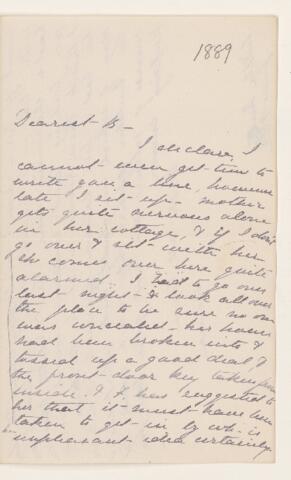 1889
Dearest B—
I declare I
cannot even get time to
write you a line, however
late I sit up — mother
gets quite nervous alone
in her cottage, & if I don't
go over & sit with her
she comes over here quite
alarmed. I had to go over
last night & look all over
the place to be sure no one
was concealed — her house
had been broken into &
tossed up a good deal &
the front door key taken from
inside. & F. has suggested to
her that it must have been
taken to get in by wh. is
unpleasant idea certainly.